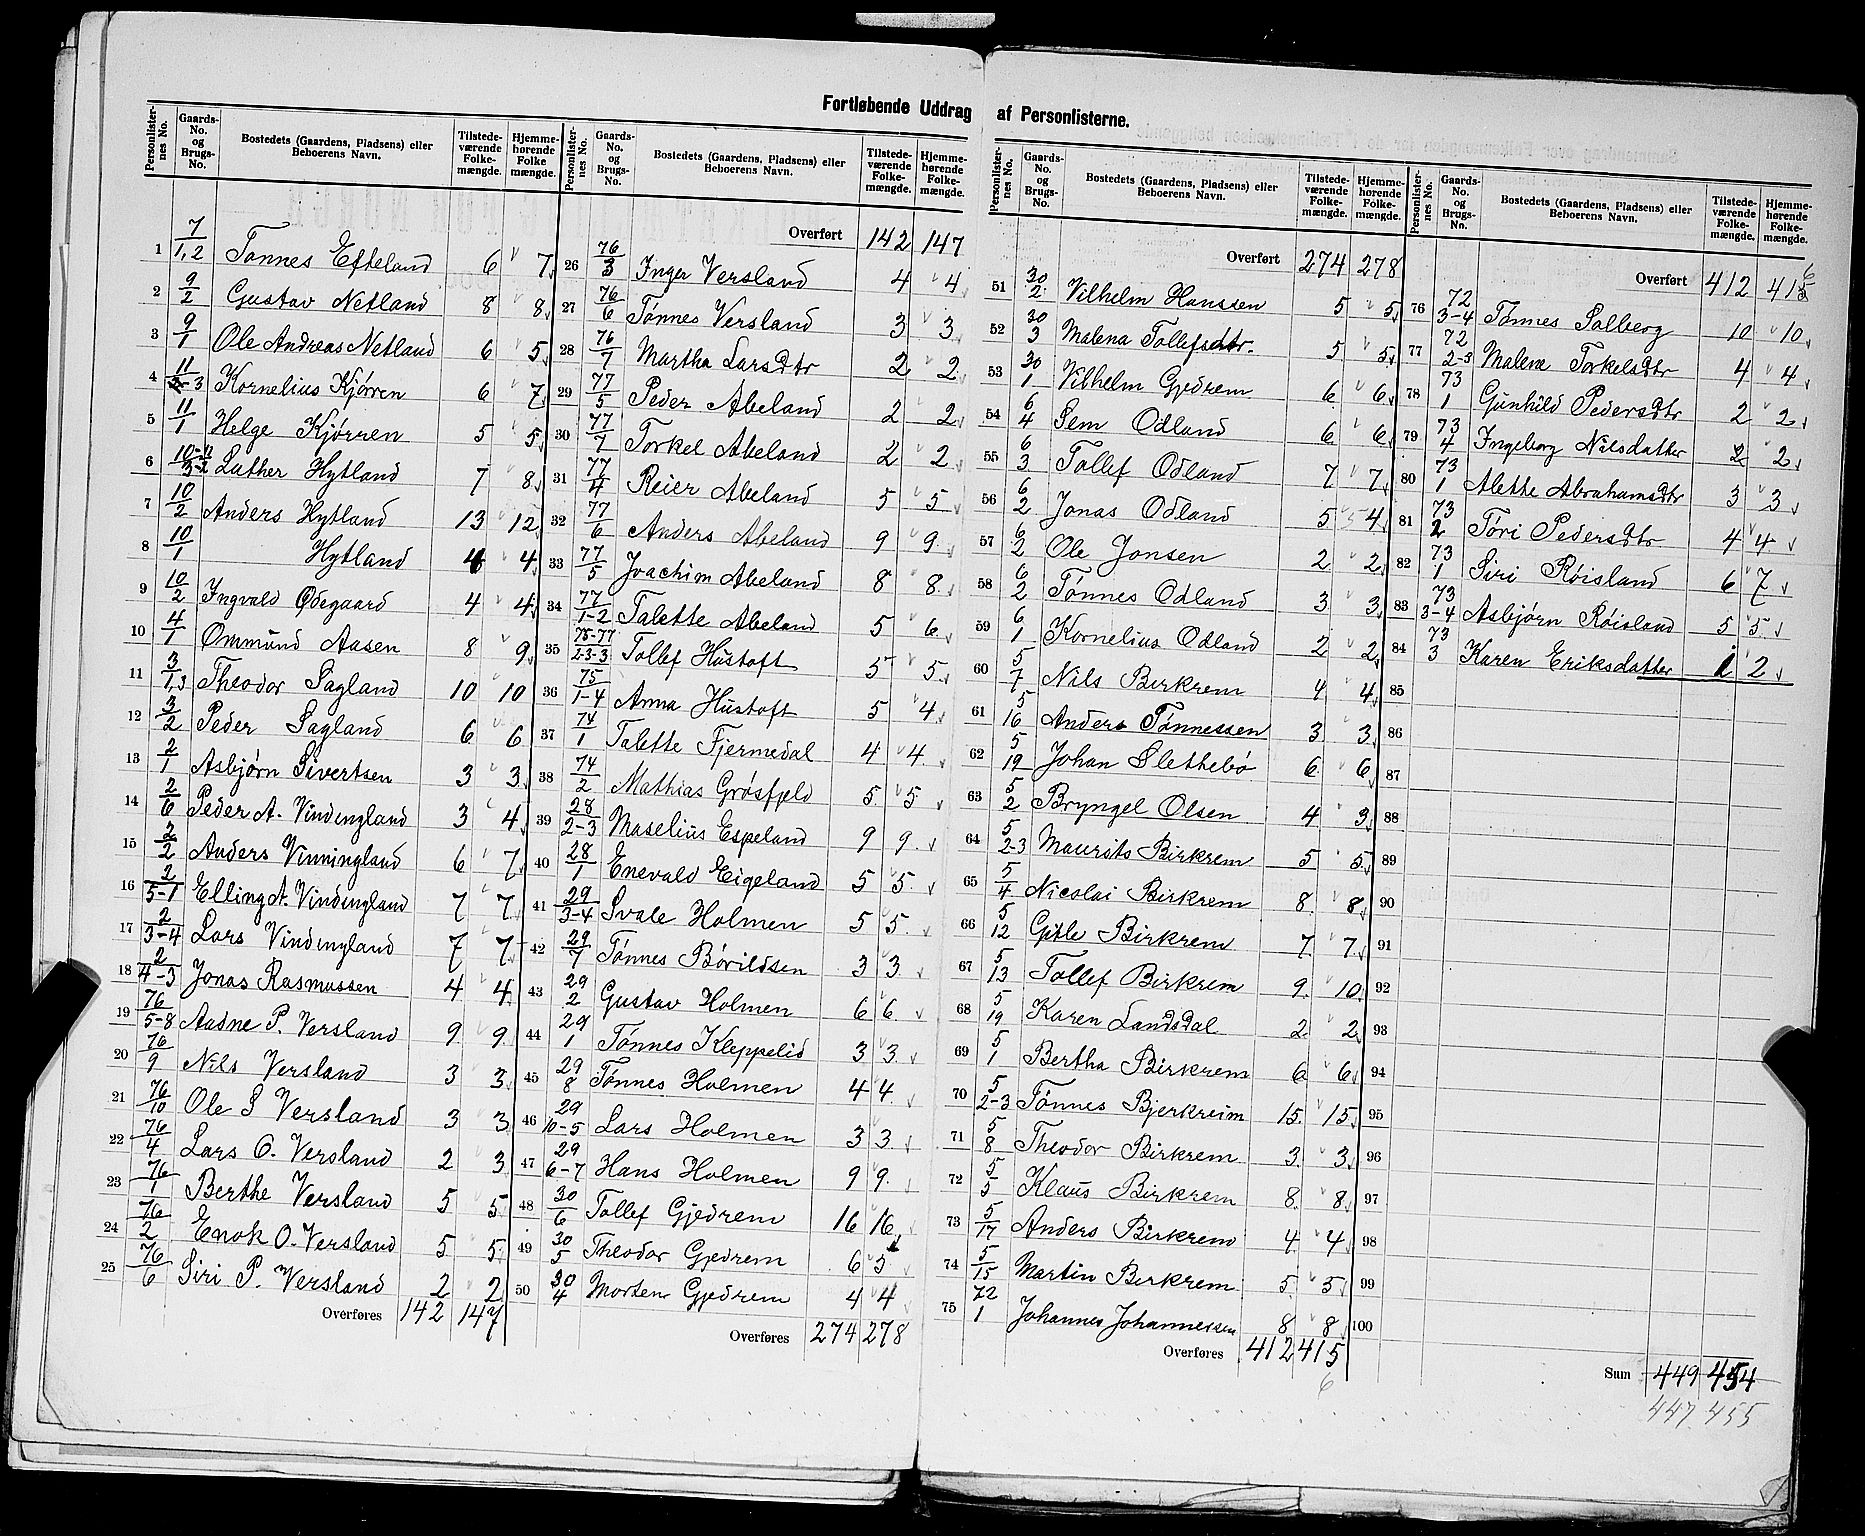 Fortløbende Uddrag af Personlisterne.
Personlister-nes No. Gaards-No. og Brugs-No. Bostedets (Gaardens, Pladsens) eller Beboerens Navn. Tilstede-værende Folke-mængde. Hjemme-hørende Folke mængde.
1 7/1,2 Tønnes Efteland 6 7
2 9/2 Gustav Netland 8 8
3 9/1 Ole Andreas Netland 6 5
4 11/3 Kornelius Kjørren 6 7
5 11/1 Helge Kjørren 5 5
6 10-11/3-2 Luther Hytland 7 8
7 10/2 Anders Hytland 13 12
8 10/1 Hytland 4 4
9 10/2 Ingvald Ødegaard 4 4
10 4/1 Ommund Aasen 8 9
11 3/1,3 Theodor Sagland 10 10
12 3/2 Peder Sagland 6 6
13 2/1 Asbjørn Sivertsen 3 3
14 2/6 Peder A. Vindingland 3 4
15 2/2 Anders Vinningland 6 7
16 2/5-1 Elling A. Vindingland 7 7
17 2/3-4 Lars Vindingland 7 7
18 2/4-3 Jonas Rasmussen 4 4
19 76/5-8 Aadne P. Versland 9 9
20 76/9 Nils Versland 3 3
21 76/10 Ole S Versland 3 3
22 76/4 Lars O. Versland 2 3
23 76/1 Berthe Versland 5 5
24 76/2 Enok O. Versland 5 5
25 76/6 Siri P. Versland 2 2
Overføres 142 147
Personlister-nes No. Gaards-No. og Brugs-No. Bostedets (Gaardens, Pladsens) eller Beboerens Navn. Tilstede-værende Folke-mængde. Hjemme-hørende Folke-mængde.
Overført 142 147
26 76/3 Inger Versland 4 4
27 76/6 Tønnes Versland 3 3
28 76/7 Martha Larsdtr 2 2
29 77/5 Peder Abeland 2 2
30 77/7 Torkel Abeland 2 2
31 77/4 Reier Abeland 5 5
32 77/6 Anders Abeland 9 9
33 77/5 Joachim Abeland 8 8
34 77/1-2 Talette Abeland 5 6
35 75-77/2-3-3 Tollef Hustoft 5 5
36 75/1-4 Anna Hustoft 5 4
37 74/1 Talette Fjermedal 4 4
38 74/2 Mathias Grøsfjeld 5 5
39 28/2-3 Maselius Espeland 9 9
40 28/1 Enevald Eigeland 5 5
41 29/3-4 Svale Holmen 5 5
42 29/7 Tønnes Børildsen 3 3
43 29/2 Gustav Holmen 6 6
44 29/1 Tønnes Kleppelid 3 3
45 29/8 Tønnes Holmen 4 4
46 29/10-5 Lars Holmen 3 3
47 29/6-7 Hans Holmen 9 9
48 30/6 Tollef Gjedrem 16 16
49 30/5 Theodor Gjedrem 6 5
50 30/4 Morten Gjedrem 4 4
Overføres 274 278
Personlister-nes No. Gaards-No. og Brugs-No. Bostedets (Gaardens, Pladsens) eller Beboerens Navn. Tilstede-værende Folke-mængde. Hjemme-hørende Folke-mængde.
Overført 274 278
51 30/2 Vilhelm Hanssen 5 5
52 30/3 Malena Tollefsdtr. 5 5
53 30/1 Vilhelm Gjedrem 6 6
54 6/4 Sem Odland 6 6
55 6/3 Tollef Odland 7 7
56 6/2 Jonas Odland 5 4
57 6/2 Ole Jonsen 2 2
58 6/2 Tønnes Odland 3 3
59 6/1 Kornelius Odland 2 2
60 5/7 Nils Birkrem 4 4
61 5/16 Anders Tønnessen 3 3
62 5/19 Johan Slettebø 6 6
63 5/2 Bryngel Olsen 4 3
64 5/2-3 Maurits Birkrem 5 5
65 5/4 Nicolai Birkrem 8 8
66 5/12 Gitle Birkrem 7 7
67 5/13 Tollef Birkrem 9 10
68 5/19 Karen Landsdal 2 2
69 5/1 Bertha Birkrem 6 6
70 5/2-3 Tønnes Bjerkreim 15 15
71 5/8 Theodor Birkrem 3 3
72 5/5 Klaus Birkrem 8 8
73 5/17 Anders Birkrem 4 4
74 5/15 Martin Birkrem 5 5
75 72/1 Johannes Johannessen 8 8
Overføres 412 415
6
Personlister-nes No. Gaards-No. og Brugs-No. Bostedets (Gaardens, Pladsens) eller Beboerens Navn. Tilstede-værende Folke-mængde. Hjemme-hørende Folke-mængde.
6
Overført 412 415
76 72/3-4 Tønnes Solberg 10 10
77 72/2-3 Malene Torkelsdtr 4 4
78 73/1 Gunhild Pedersdtr 2 2
79 73/4 Ingeborg Nilsdatter 2 2
80 73/1 Alette Abrahamsdtr 3 3
81 73/2 Tøri Pedersdtr 4 4
82 73/1 Siri Røisland 6 7
83 73/3-4 Asbjørn Røisland 5 5
84 73/3 Karen Eriksdatter 1 2
85
86
87
88
89
90
91
92
93
94
95
96
97
98
99
100
Sum 449 454
447. 455